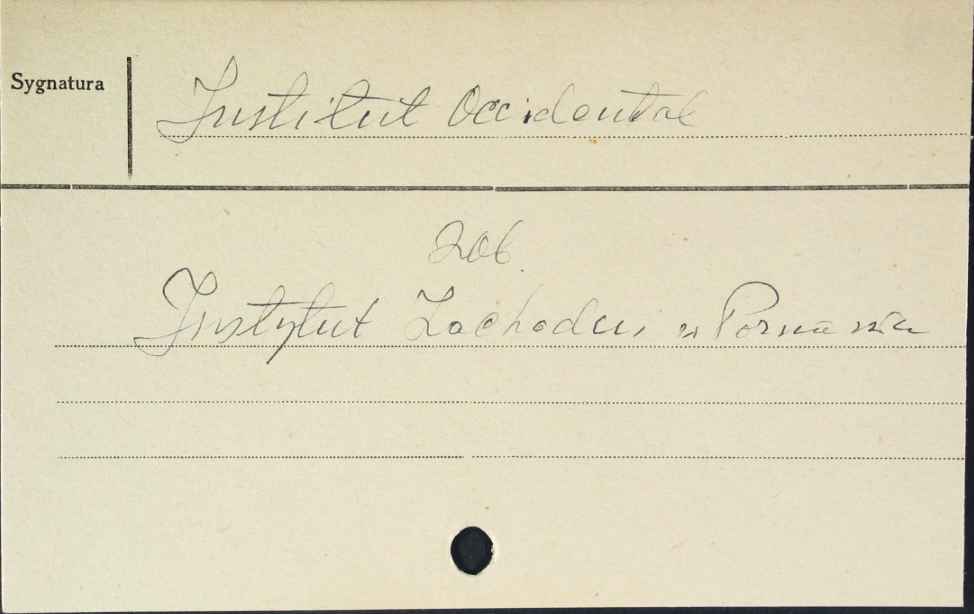 Sygnatura
Institut Occidental
zob.
Instytut Zachodni w Poznaniu